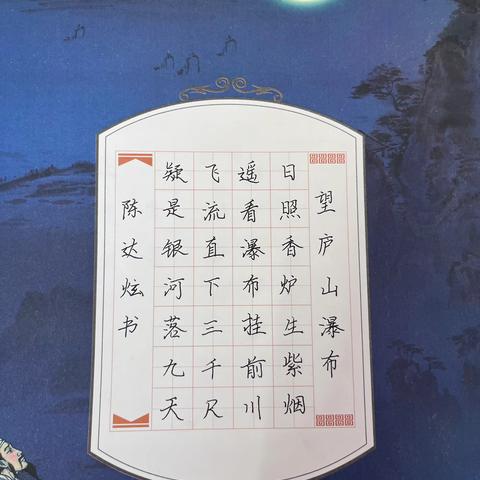 望庐山瀑布
日照香炉生紫烟
遥看瀑布挂前川
飞流直下三千尺
疑是银河落九天
陈达炫书